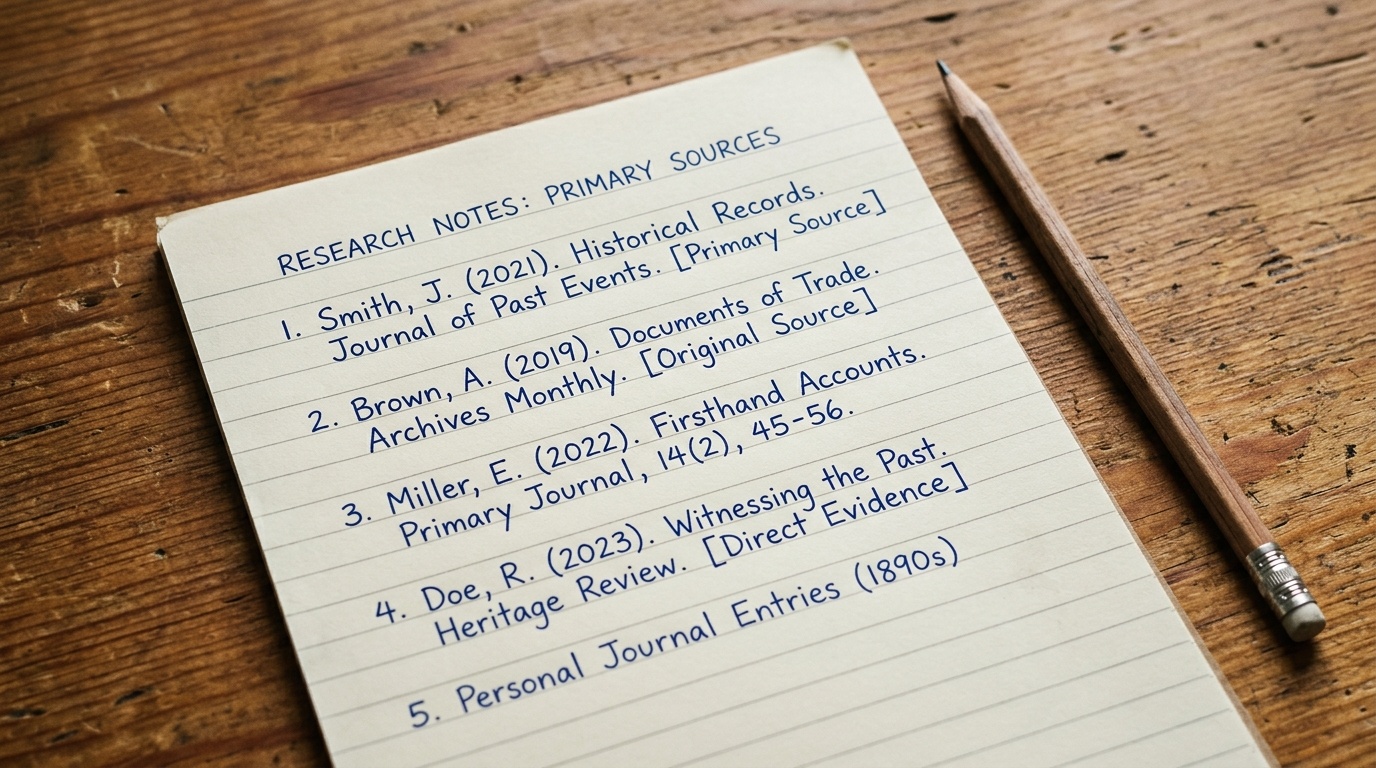 RESEARCH NOTES: PRIMARY SOURCES
1. Smith, J. (2021). Historical Records.
Journal of Past Events. [Primary Source]
2. Brown, A. (2019). Documents of Trade.
Archives Monthly. [Original Source]
3. Miller, E. (2022). Firsthand Accounts.
Primary Journal, 14(2), 45-56.
4. Doe, R. (2023). Witnessing the Past.
Heritage Review. [Direct Evidence]
5. Personal Journal Entries (1890s)